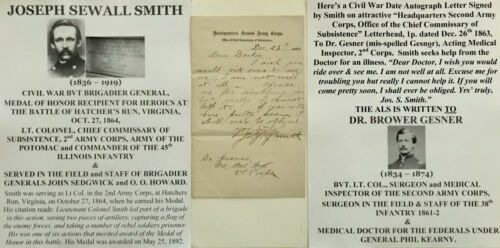 JOSEPH SEWALL SMITH
(1836 - 1919)
CIVIL WAR BVT BRIGADIER GENERAL,
MEDAL OF HONOR RECIPIENT FOR HEROICS AT
THE BATTLE OF HATCHER'S RUN, VIRGINIA,
OCT. 27, 1864,
LT. COLONEL, CHIEF COMMISSARY OF
SUBSISTENCE, 2nd ARMY CORPS, ARMY OF
THE POTOMAC and COMMANDER OF THE 45th
ILLINOIS INFANTRY
&
SERVED IN THE FIELD and STAFF OF BRIGADIER
GENERALS JOHN SEDGWICK and O. O. HOWARD.
Smith was serving as Lt. Col. in the 2nd Army Corps, at Hatchers
Run, Virginia, on October 27, 1864, when he earned his Medal. His
citation reads: Lieutenant Colonel Smith led part of a brigade
in this action, saving two pieces of artillery, capturing a flag of
the enemy forces, and taking a number of rebel soldiers prisoner.
His was one of six actions that merited award of the Medal of
Honor in this battle. His Medal was awarded on May 25, 1892.
Headquarters Second Army Corps,
Office of Chief Commissary of Subsistence,
Dec 26th
Dear Doctor
I wish you
would ride over & see
me. I am not well
at all. Excuse
me for troubling you
but really I cannot
help it. If you will
come pretty soon I
shall ever be obliged.
Yrs truly
Jos. S. Smith
Dr Gesnor
Here's a Civil War Date Autograph Letter Signed
by Smith on attractive "Headquarters Second Army
Corps, Office of the Chief Commissary of
Subsistence" Letterhead, 1p. dated Dec. 26th 1863,
To Dr. Gesner (mis-spelled Gesngr), Acting Medical
Inspector, 2nd Corps. Smith seeks help from the
Doctor for an illness. "Dear Doctor, I wish you would
ride over & see me. I am not well at all. Excuse me for
troubling you but really I cannot help it. If you will
come pretty soon, I shall ever be obliged. Yrs' truly,
Jos. S. Smith."
THE ALS IS WRITTEN TO
DR. BROWER GESNER
(1834 - 1874)
BVT. LT. COL., SURGEON and MEDICAL
INSPECTOR OF THE SECOND ARMY CORPS,
SURGEON IN THE FIELD & STAFF OF THE 38th
INFANTRY 1861-2 &
MEDICAL DOCTOR FOR THE FEDERALS UNDER
GENERAL PHIL KEARNY.